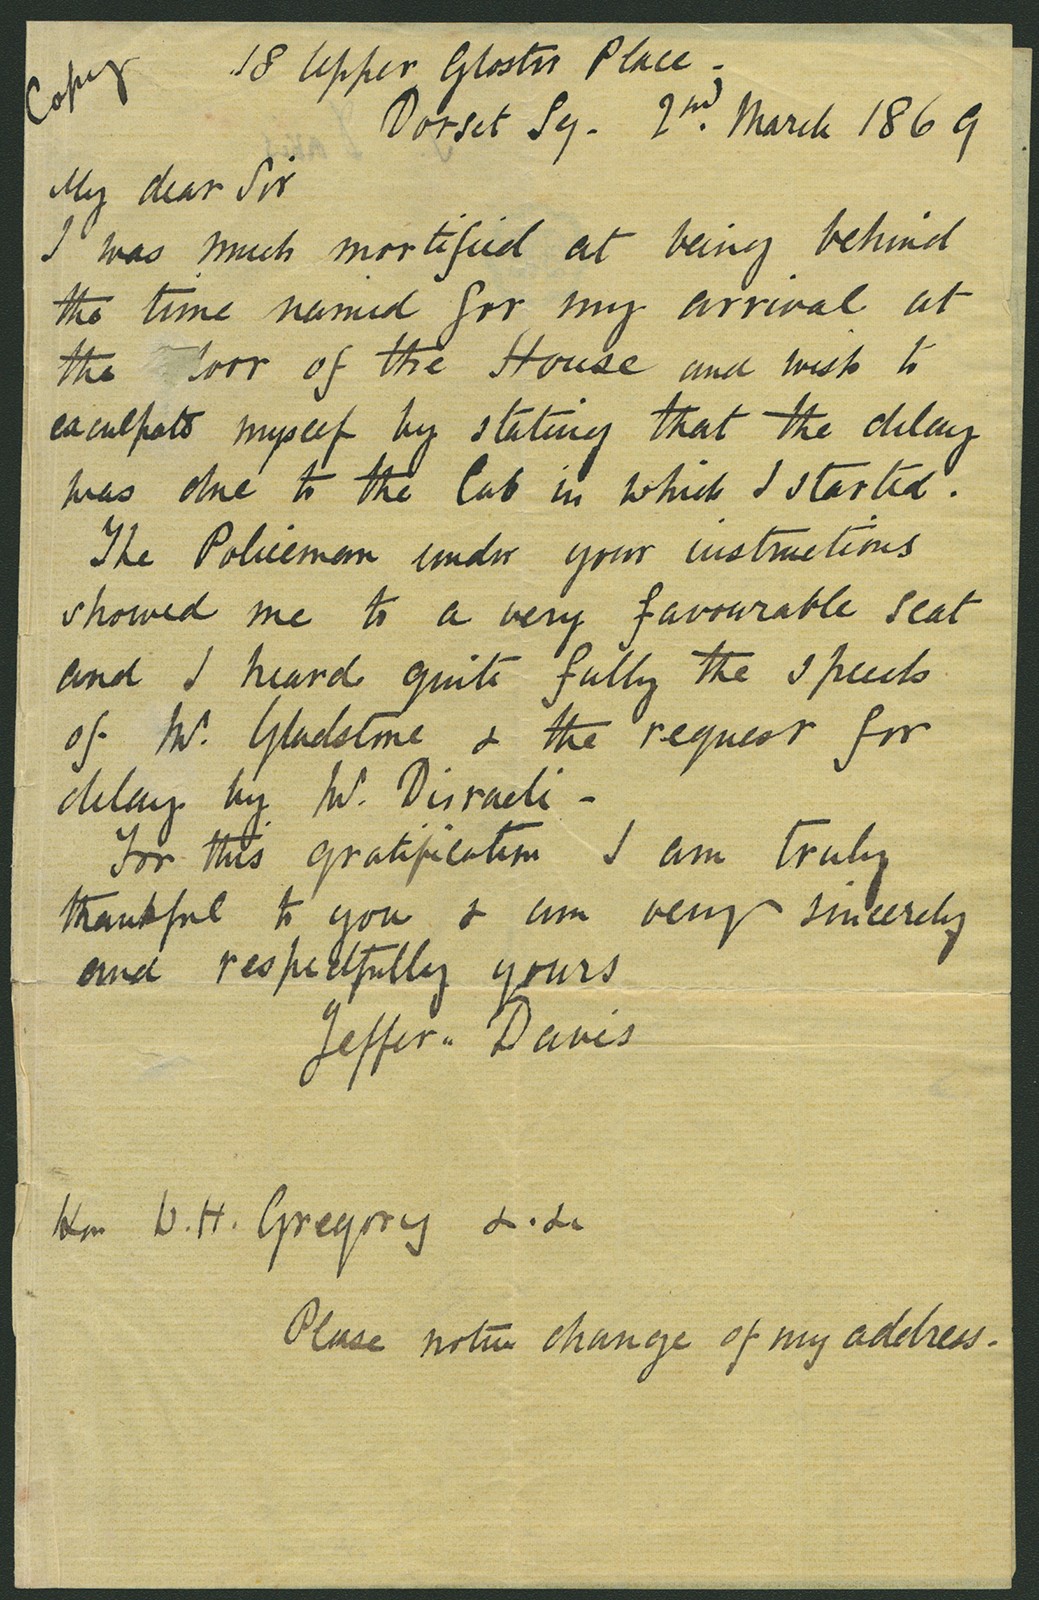 Copy
18 Upper Gloster Place -
Dorset Sq - 2nd. March 1869
My dear Sir
I was much mortified at being behind
the time named for my arrival at
the door of the House and wish to
exculpate myself by stating that the delay
was due to the Cab in which I started.
The Policeman under your instructions
showed me to a very favourable seat
and I heard quite fully the speech
of Mr. Gladstone & the request for
delay by Mr. Disraeli -
For this gratification I am truly
thankful to you & am very sincerely
and respectfully yours
Jeffer. Davis
Hon W. H. Gregory &. &c
Please notice change of my address.